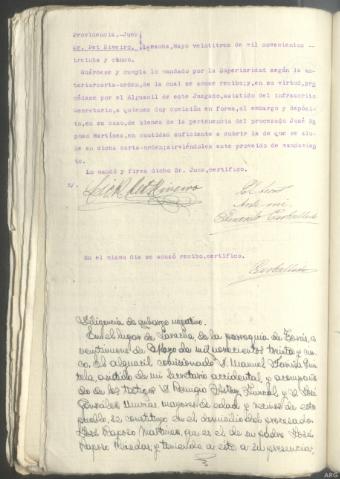 Providencia.-Juez
Sr. Pol Riveiro. Laracha, Mayo veintitres de mil novecientos
treinta y cinco.
Guárdese y cumpla lo mandado por la Superioridad según la an-
terior carta-orden, de la cual se acuse recibo; y en su virtud, pro
cédase por el Alguacil de este Juzgado, asistido del infrascrito
Secretario, a quienes doy comisión en forma, al embargo y depósi-
to, en su caso, de bienes de la pertenencia del procesado José Ra
poso Martinez, en cantidad suficiente a cubrir la de que se alu-
de en dicha carta-orden; sirviéndoles este proveido de mandamien-
to.
Lo mandó y firma dicho Sr. Juez, certifico.
Ante mi
En el mismo dia se acusó recibo, certifico.
Diligencia de embargo negativo.
En el lugar de Laracha, de la parroquia de
veintinueve de Mayo de mil novecientos treinta y cin-
co. El alguacil comisionado D. Manuel
asistido de mi Secretario accidental, y acompaña-
do de los testigos D. Remigio y D. José
González mayores de edad y vecinos de este
pueblo, se constituyó en el domicilio del procesado
José Raposo Martinez, que es el de su padre José
Raposo y teniendo a este a su presencia,